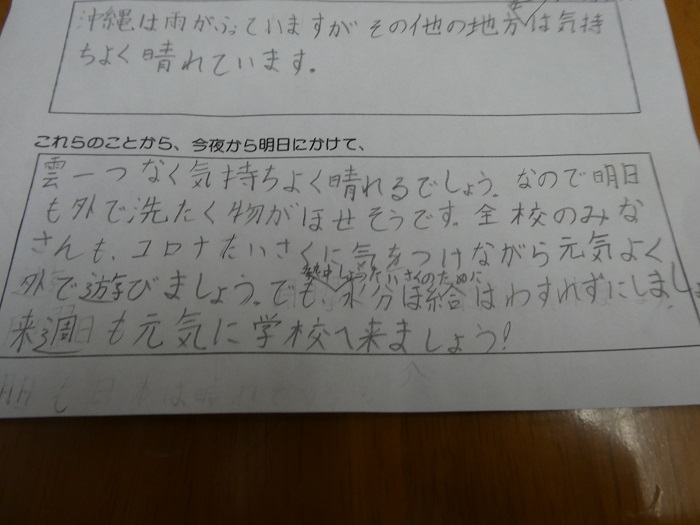 沖縄は雨がふっていますがその他の地方は気持
ちよく晴れています。
これらのことから、今夜から明日にかけて、
雲一つなく気持ちよく晴れるでしょう。なので明日
も外で洗たく物がほせそうです。全校のみな
さんも、コロナたいさくに気をつけながら元気よく
外で遊びましょう。でも、熱中しょうたいさくのために水分ほ給はわすれずにしましょ
来週も元気に学校へ来ましょう!